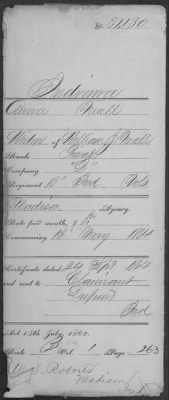 No. 31130
Indiana
Anna Neall
Widow of William J. Neall
Rank Priv
Company "D"
Regiment 12" Ind. Vols
Madison Agency.
Rate per month, $8
Commencing 14" May 1864
Certificate dated 24 Sept 1864
and sent to Claimant
Ind
Act 14th July, 1862.
Book B Vol. 1 Page 263
Roberts
Madison